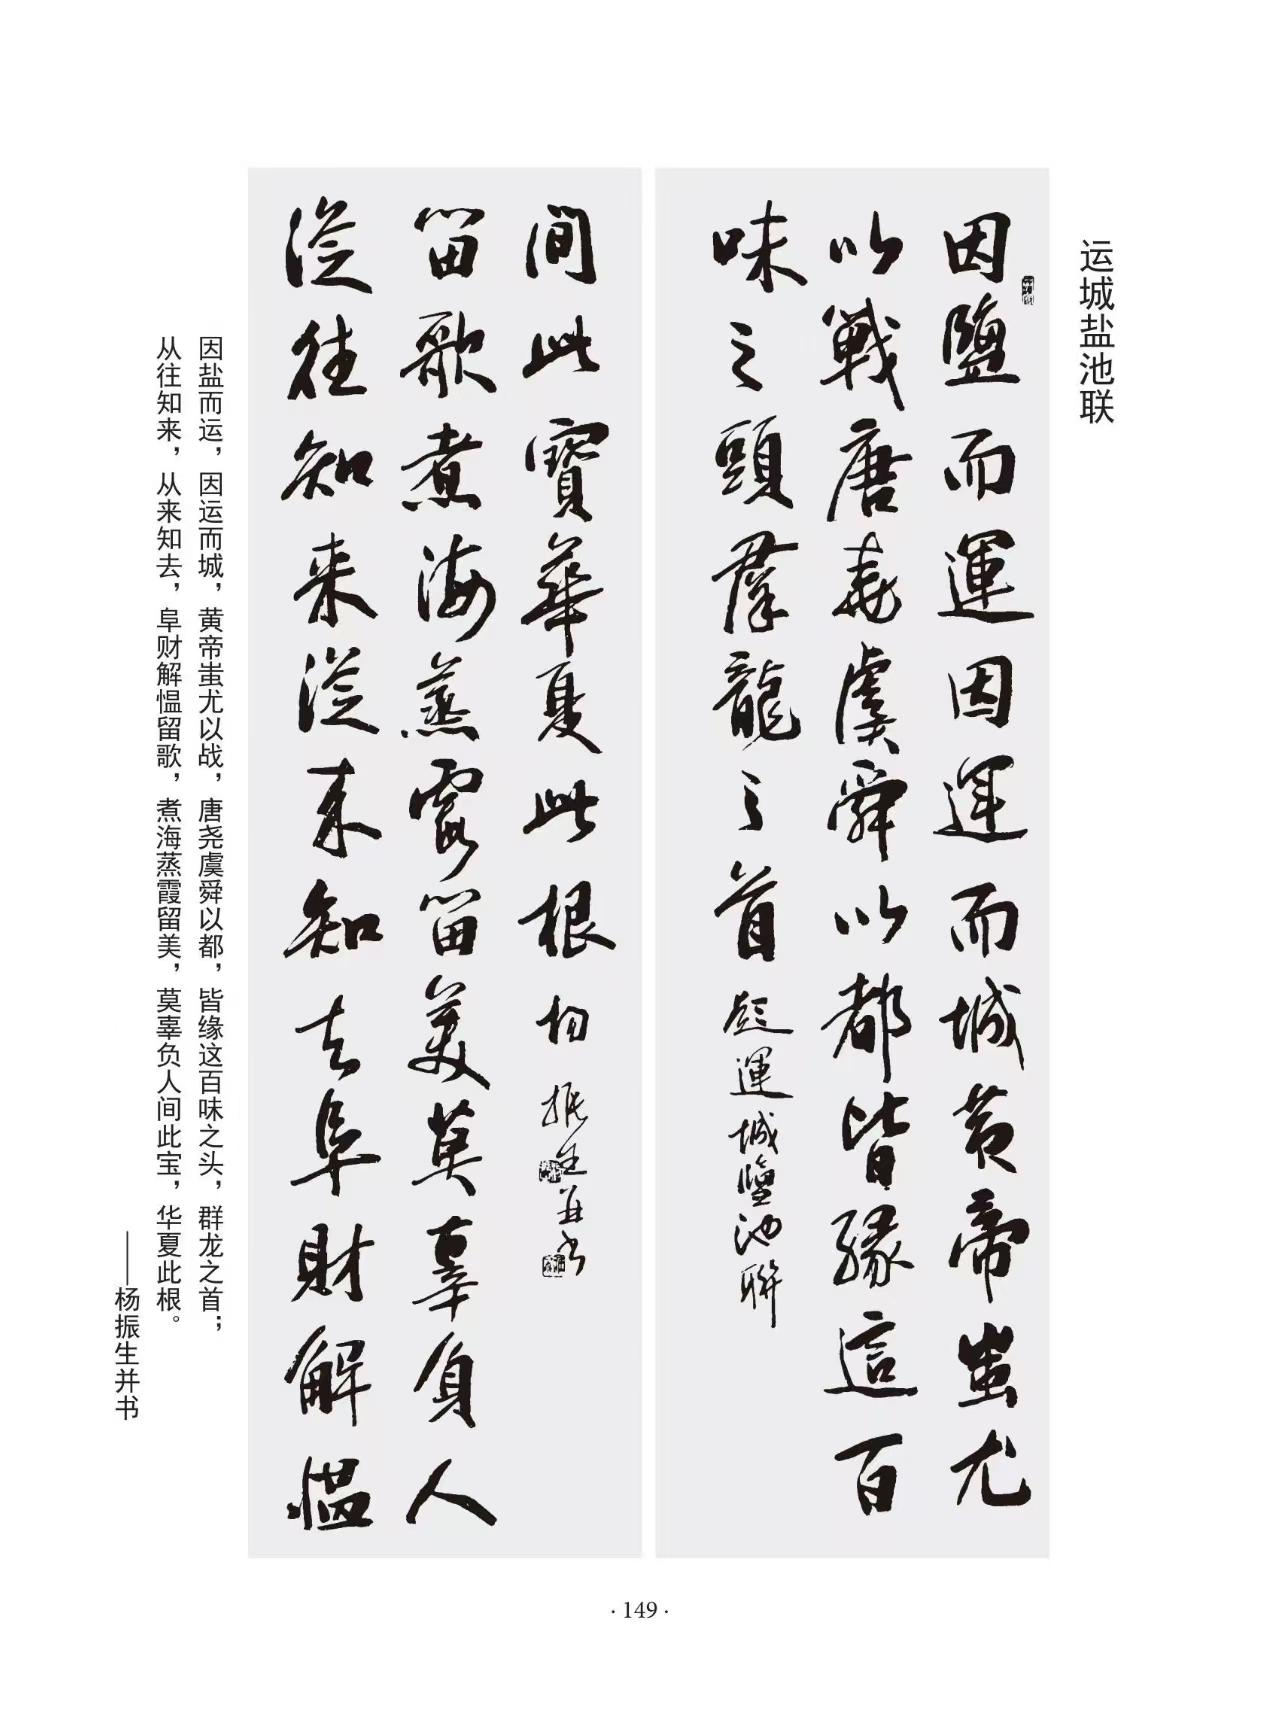 运城盐池联
因鹽而運因運而城黄帝蚩尤
以戰唐堯虞舜以都皆緣這百
味之頭群龍之首 題運城鹽池聯
從往知来從来知去阜財解愠
留歌煮海蒸霞留美莫辜負人
间此寶華夏此根 振生并书
因盐而运，因运而城，黄帝蚩尤以战，唐尧虞舜以都，皆缘这百味之头，群龙之首；
从往知来，从来知去，阜财解愠留歌，煮海蒸霞留美，莫辜负人间此宝，华夏此根。
——杨振生并书
·149·